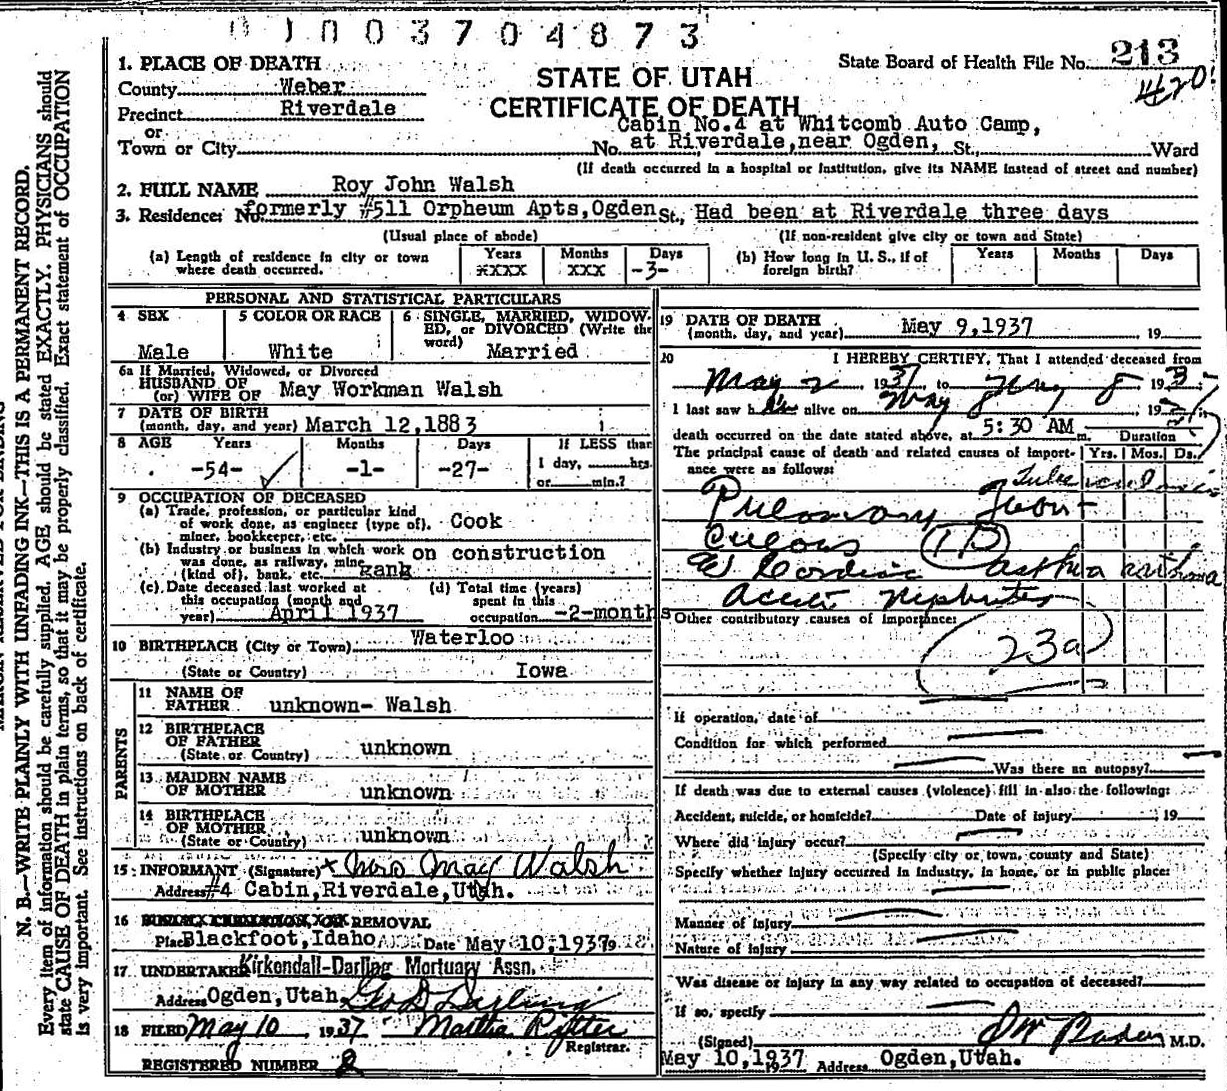 01003704873
State Board of Health File No. 213
#20
STATE OF UTAH
CERTIFICATE OF DEATH
1. PLACE OF DEATH
County Weber
Precinct Riverdale
or
Town or City
Cabin No.4 at Whitcomb Auto Camp,
No. at Riverdale,near Ogden, St., Ward
(If death occurred in a hospital or institution, give its NAME instead of street and number)
2. FULL NAME Roy John Walsh
3. Residence: No. formerly #511 Orpheum Apts,Ogden St., Had been at Riverdale three days
(Usual place of abode) (If non-resident give city or town and State)
(a) Length of residence in city or town where death occurred. Years xxxx Months xxx Days -3-
(b) How long in U. S., if of foreign birth? Years Months Days
PERSONAL AND STATISTICAL PARTICULARS
4 SEX Male
5 COLOR OR RACE White
6 SINGLE, MARRIED, WIDOWED, or DIVORCED (Write the word) Married
6a If Married, Widowed, or Divorced
HUSBAND OF
(or) WIFE OF May Workman Walsh
7 DATE OF BIRTH
(month, day, and year) March 12,1883
8 AGE Years -54- Months -1- Days -27- If LESS than 1 day, hrs. or min.?
9 OCCUPATION OF DECEASED
(a) Trade, profession, or particular kind of work done, as engineer (type of), miner, bookkeeper, etc. Cook
(b) Industry or business in which work was done, as railway, mine (kind of), bank, etc. on construction gang
(c) Date deceased last worked at this occupation (month and year) April 1937
(d) Total time (years) spent in this occupation -2-months
10 BIRTHPLACE (City or Town) Waterloo
(State or Country) Iowa
PARENTS
11 NAME OF FATHER unknown- Walsh
12 BIRTHPLACE OF FATHER (State or Country) unknown
13 MAIDEN NAME OF MOTHER unknown
14 BIRTHPLACE OF MOTHER (State or Country) unknown
15 INFORMANT (Signature) x Mrs May Walsh
Address #4 Cabin,Riverdale,Utah.
16 BURIAL, CREMATION, OR REMOVAL
Place Blackfoot,Idaho Date May 10,1937
17 UNDERTAKER Kirkendall-Darling Mortuary Assn.
Address Ogden,Utah Geo D Darling
18 FILED May 10 1937 Martha Ritter
Registrar.
REGISTERED NUMBER 2
19 DATE OF DEATH
(month, day, and year) May 9,1937 19
20 I HEREBY CERTIFY, That I attended deceased from
May 2 1937 to May 8 1937
I last saw h alive on May 8 1937
death occurred on the date stated above, at 5:30 AM m.
The principal cause of death and related causes of importance were as follows:
Duration
Yrs. Mos. Ds.
Pulmonary Tuber
culous TB
Cardiac asthma asthma
Acute Nephritis
Other contributory causes of importance:
23a
If operation, date of
Condition for which performed
Was there an autopsy?
If death was due to external causes (violence) fill in also the following:
Accident, suicide, or homicide? Date of injury 19
Where did injury occur?
(Specify city or town, county and State)
Specify whether injury occurred in industry, in home, or in public place:
Manner of injury
Nature of injury
Was disease or injury in any way related to occupation of deceased?
If so, specify
(Signed) M.D.
May 10,1937 Address Ogden,Utah.
N. B.—WRITE PLAINLY WITH UNFADING INK—THIS IS A PERMANENT RECORD.
Every item of information should be carefully supplied. AGE should be stated EXACTLY. PHYSICIANS should
state CAUSE OF DEATH in plain terms, so that it may be properly classified. Exact statement of OCCUPATION
is very important. See instructions on back of certificate.